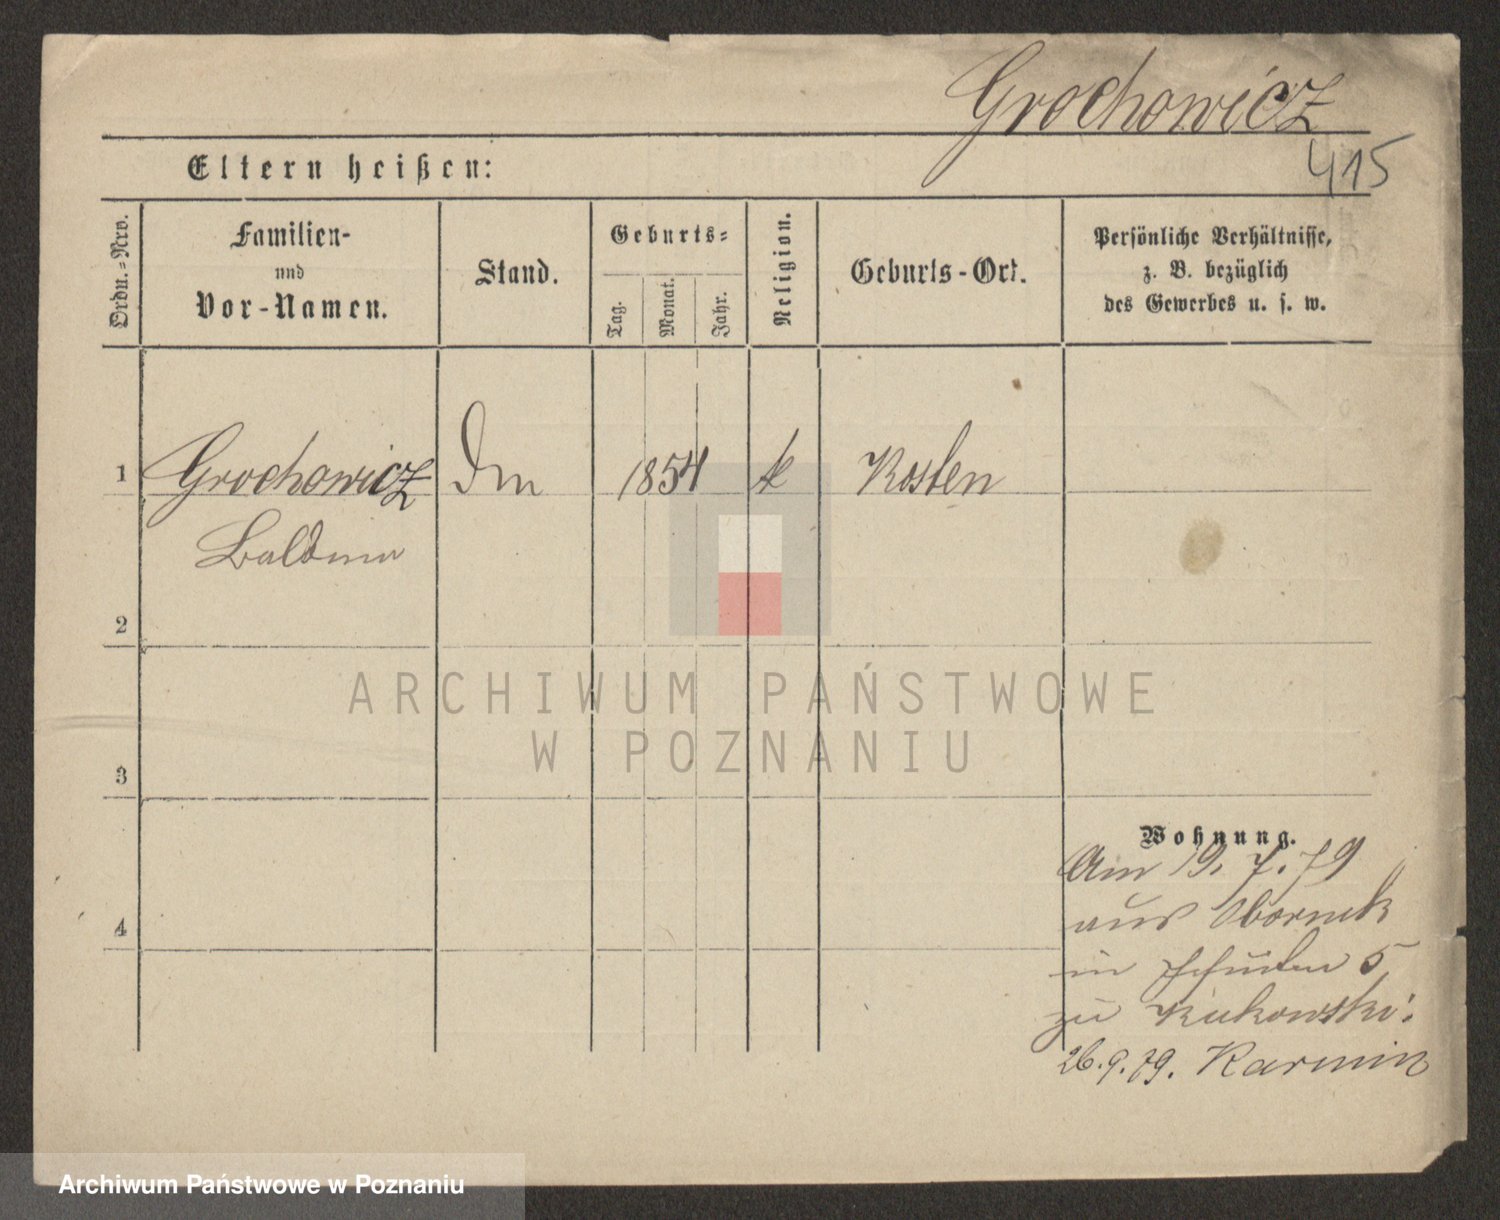 Grochowicz
415
Eltern heißen:
Ordn.-Nro.
Familien-
und
Vor-Namen.
Stand.
Geburts-
Tag.
Monat.
Jahr.
Religion.
Geburts-Ort.
Persönliche Verhältnisse,
z. B. bezüglich
des Gewerbes u. s. w.
1 Grochowicz 1854 k Kosten
2
3
4
Wohnung.
Am 19. 7. 79
aus Obornik
in 5
zu
26.9.79. Karmin
ARCHIWUM PAŃSTWOWE
W POZNANIU
Archiwum Państwowe w Poznaniu